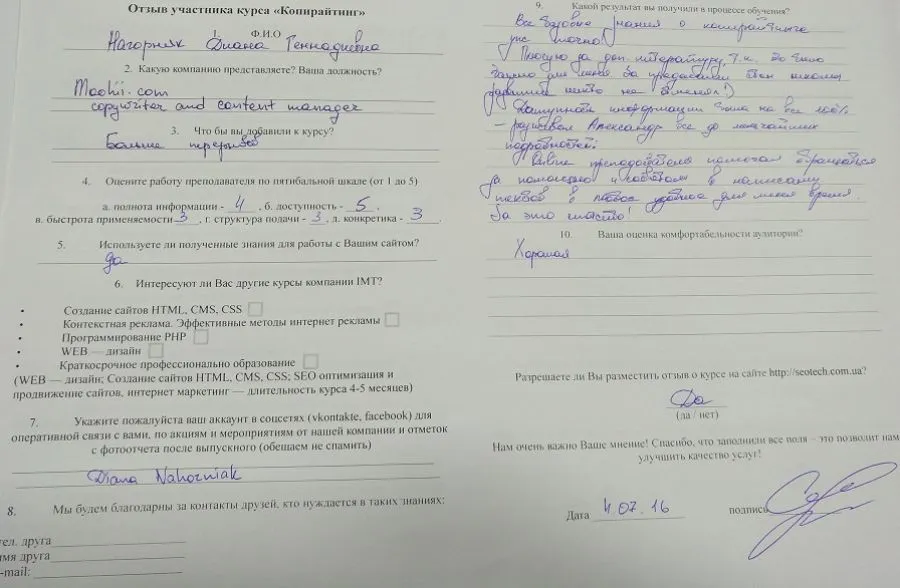 Отзыв участника курса «Копирайтинг»
1. Ф.И.О
Нагорняк Диана Геннадиевна
2. Какую компанию представляете? Ваша должность?
Moohii.com
copywriter and content manager
3. Что бы вы добавили к курсу?
Больше перерывов
4. Оцените работу преподавателя по пятибальной шкале (от 1 до 5)
а. полнота информации - 4, б. доступность - 5,
в. быстрота применяемости 3, г. структура подачи - 3, д. конкретика - 3
5. Используете ли полученные знания для работы с Вашим сайтом?
Да
6. Интересуют ли Вас другие курсы компании IMT?
• Создание сайтов HTML, CMS, CSS
• Контекстная реклама. Эффективные методы интернет рекламы
• Программирование PHP
• WEB — дизайн
• Краткосрочное профессионально образование
(WEB — дизайн; Создание сайтов HTML, CMS, CSS; SEO оптимизация и
продвижение сайтов, интернет маркетинг — длительность курса 4-5 месяцев)
7. Укажите пожалуйста ваш аккаунт в соцсетях (vkontakte, facebook) для
оперативной связи с вами, по акциям и мероприятиям от нашей компании и отметок
с фотоотчета после выпускного (обещаем не спамить)
Diana Nahorniak
8. Мы будем благодарны за контакты друзей, кто нуждается в таких знаниях:
тел. друга
имя друга
e-mail:
9. Какой результат вы получили в процессе обучения?
Все базовые знания о копирайтинге
уже точно!
Плюсую за доп. литературу, т.к. до этого
Доступность информации была на все 100%
– разжевал Александр все до мельчайших
подробностей.
помогал
за помощью и советами в написании
текстов в любое удобное для меня время.
За это спасибо!
10. Ваша оценка комфортабельности аудитории?
Хорошая
Разрешаете ли Вы разместить отзыв о курсе на сайте http://seotech.com.ua?
Да
(да / нет)
Нам очень важно Ваше мнение! Спасибо, что заполнили все поля – это позволит нам
улучшить качество услуг!
Дата 4.07.16 подпись